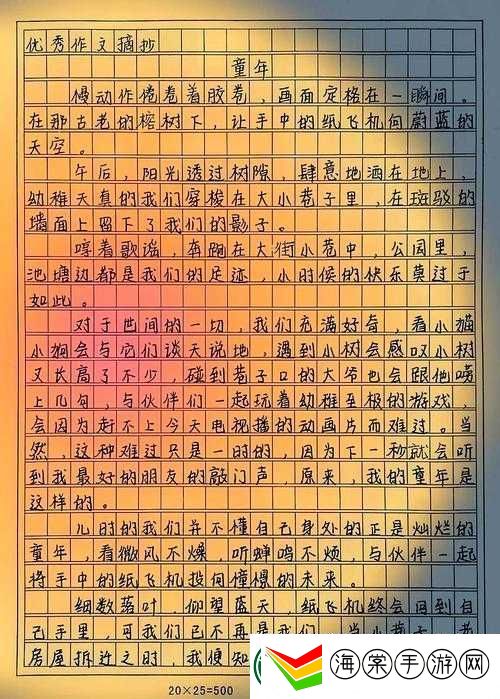 优秀作文摘抄
童年
慢动作倦卷着胶卷，画面定格在一瞬间。
在那古老的榕树下，让手中的纸飞机向蔚蓝的
天空。
午后，阳光透过树隙，肆意地洒在地上，
幼稚天真的我们穿梭在大小巷子里，在斑驳的
墙面上留下了我们的影子。
哼着歌谣，奔跑在大街小巷中，公园里，
池塘边都是我们的足迹，小时候的快乐莫过于
如此。
对于世间的一切，我们充满好奇，看小猫
小狗会与它们谈天说地，遇到小树会感叹小树
又长高了不少，碰到巷子口的大爷也会跟他唠
上几句，与伙伴们一起玩着幼稚至极的游戏，
会因为赶不上今天电视播的动画片而难过。当
然，这种难过只是一时的，因为下一秒就会听
到我最好的朋友的敲门声，原来，我的童年是
这样的。
儿时的我们并不懂自己身处的正是灿烂的
童年，看微风不燥，听蝉鸣不烦，与伙伴一起
将手中的纸飞机投向憧憬的未来。
细数落叶，仰望蓝天，纸飞机终会回到自
己手里，可我们已不再是我们，当小巷子、老
房屋拆近之时，我便知
20×25=500
海棠手游网